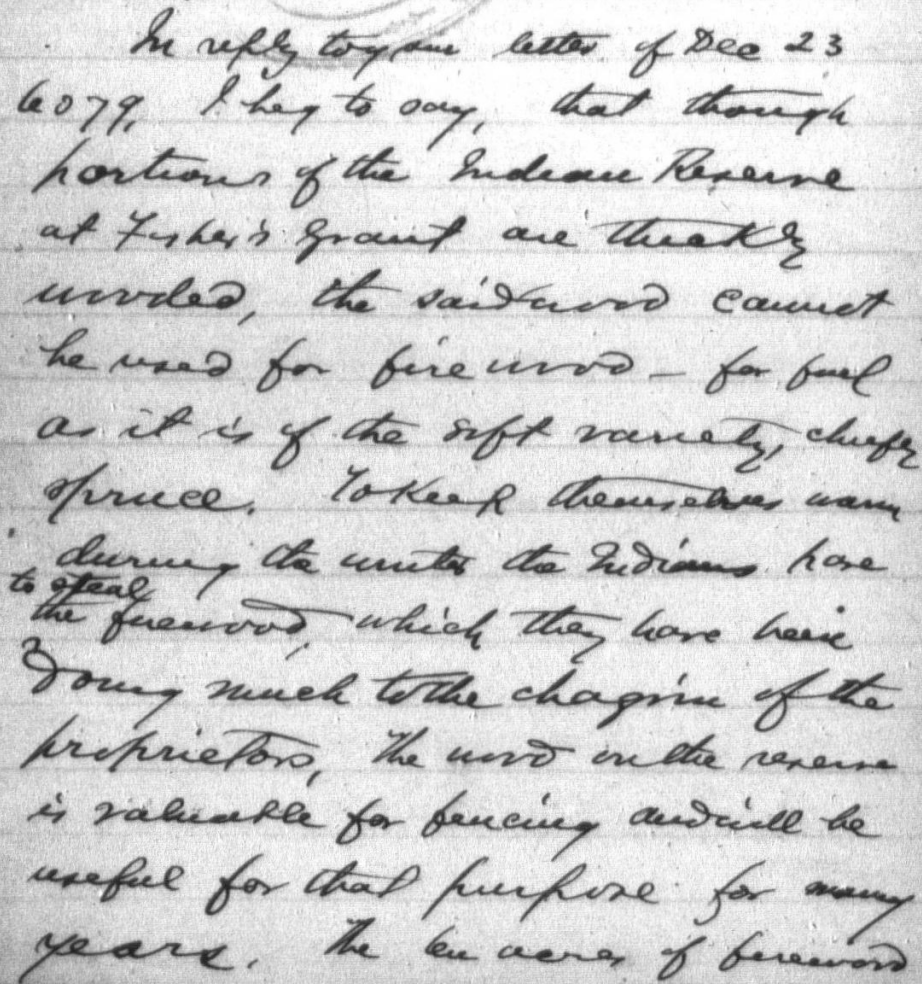 In reply to your letter of Dec 23
6079, I beg to say, that though
portions of the Indian Reserve
at Fisher's Grant are thickly
wooded, the said wood cannot
be used for fire wood - for fuel
as it is of the soft variety, chiefly
spruce. To keep themselves warm
during the winter the Indians have
to steal
the firewood, which they have been
doing much to the chagrin of the
proprietors, The wood on the reserve
is valuable for fencing and will be
useful for that purpose for many
years. The ten acres of firewood